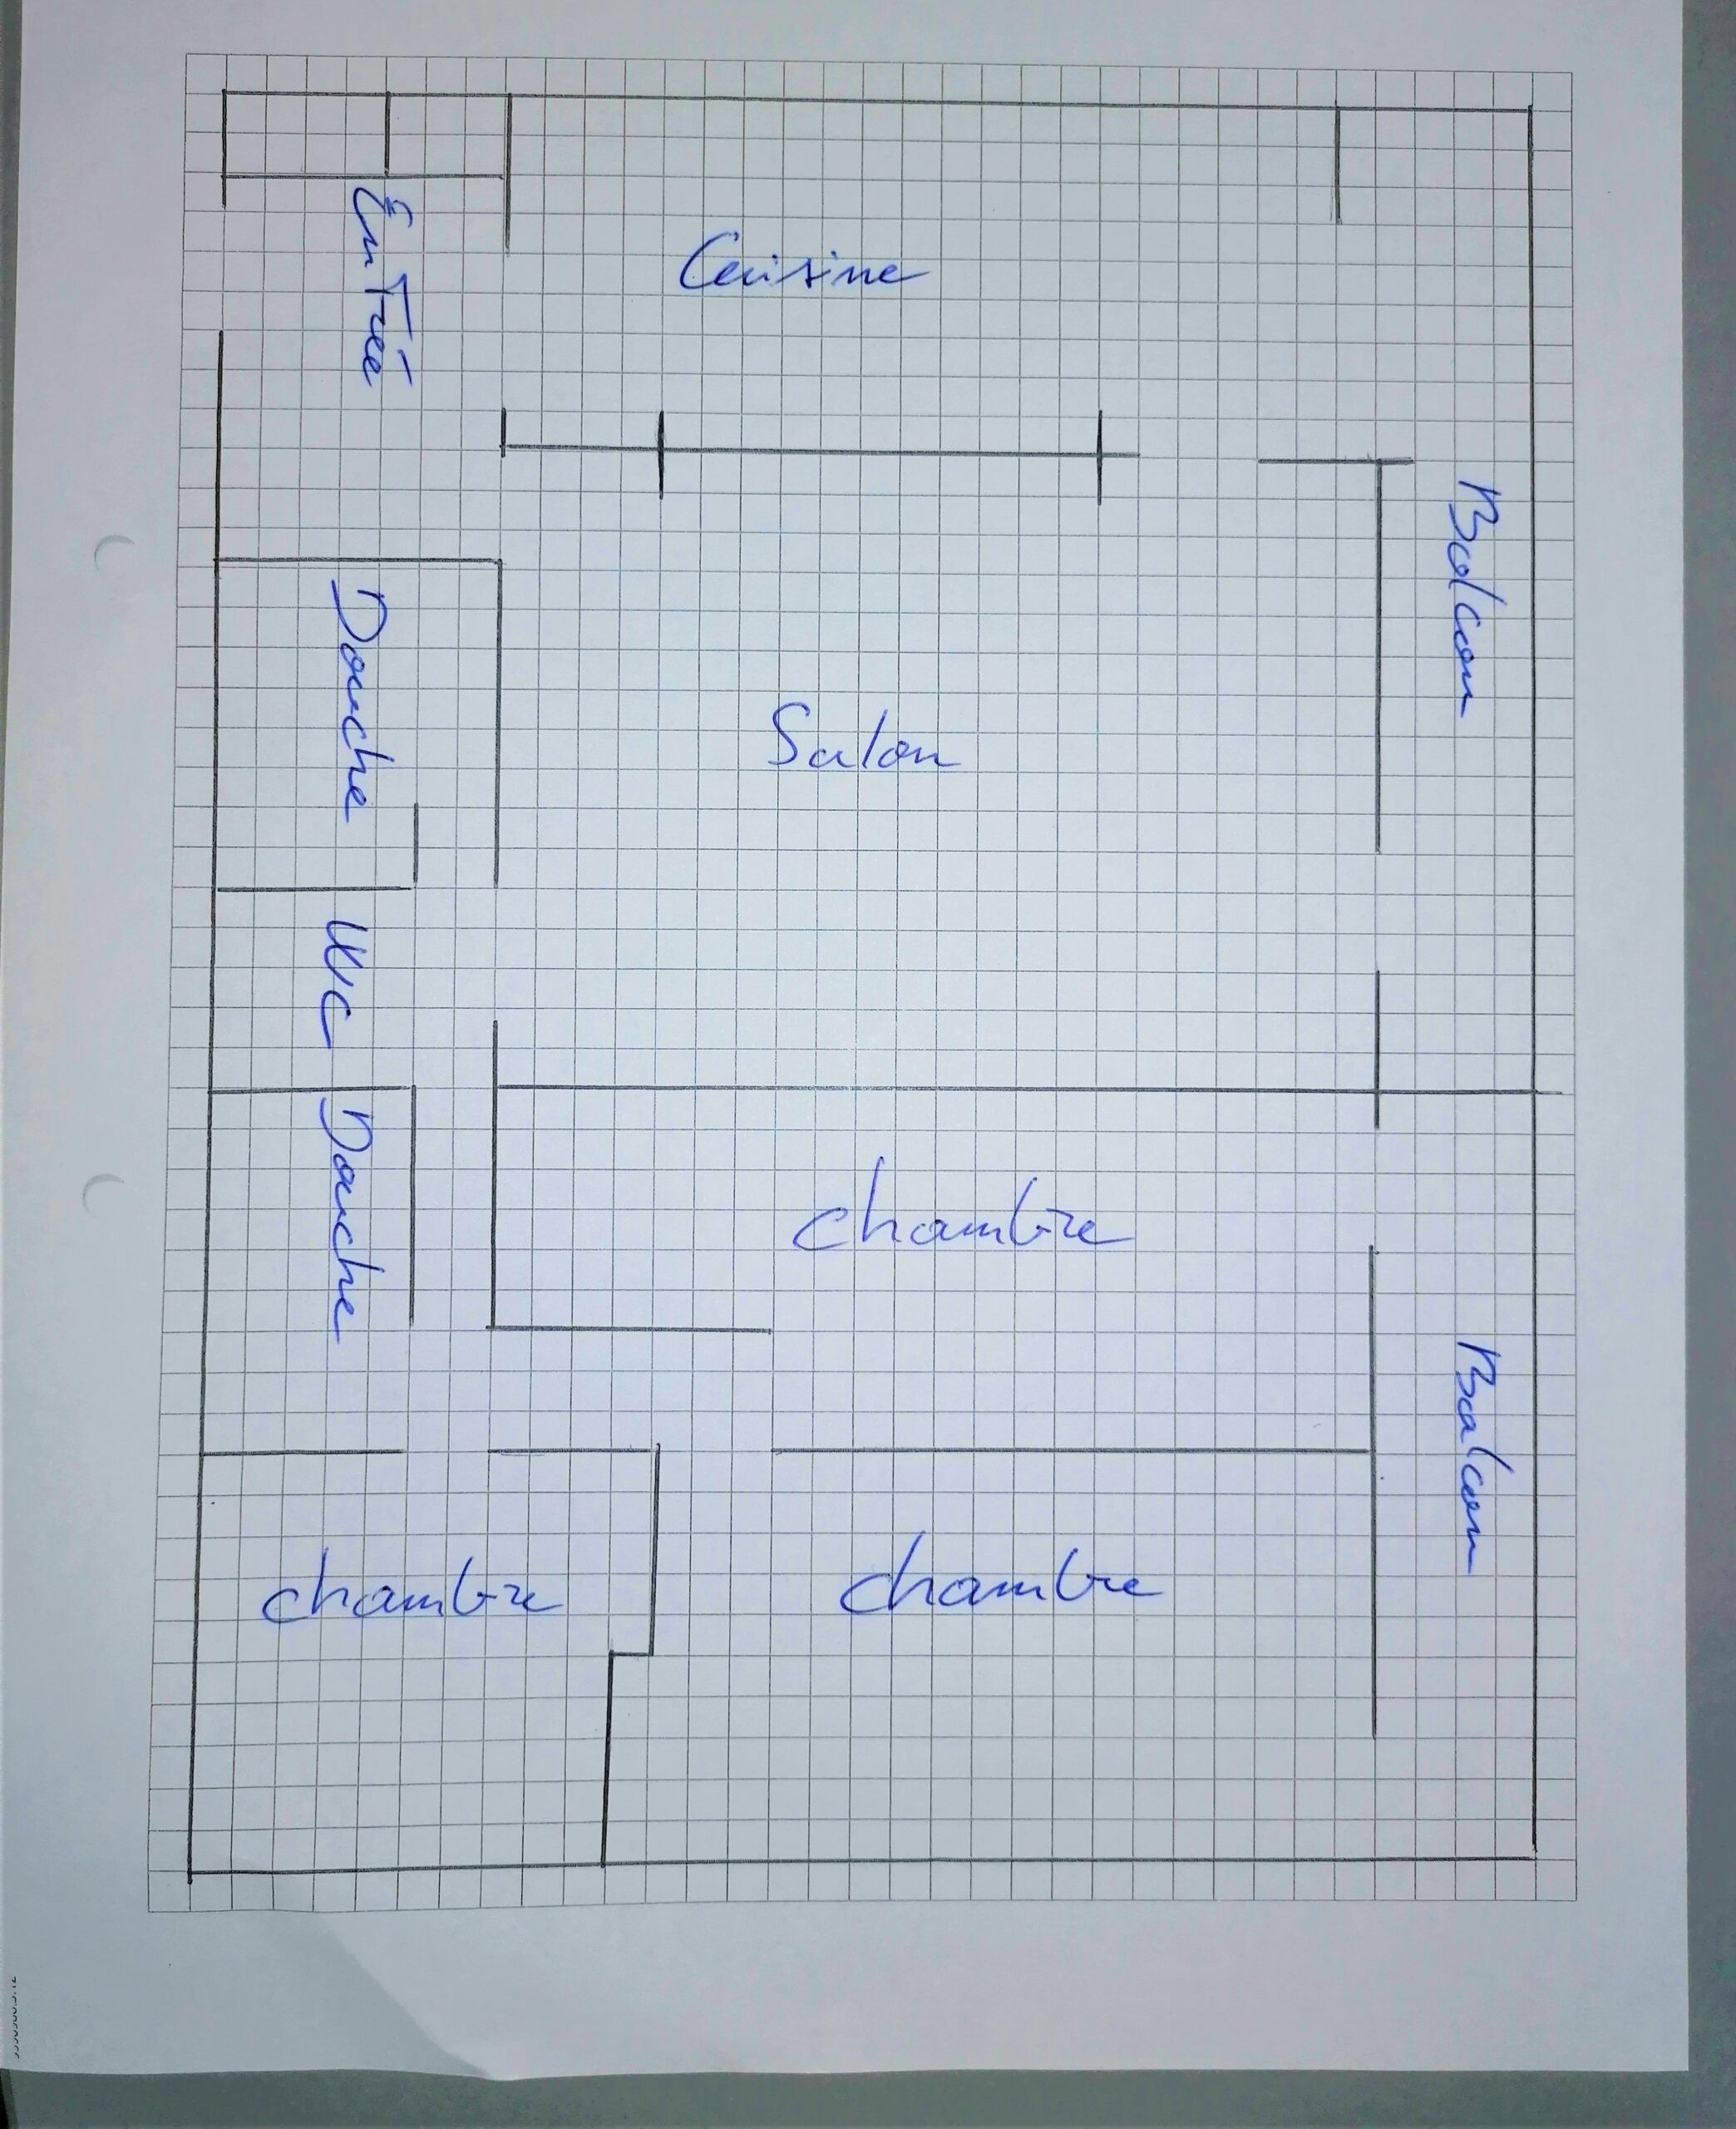 Entrée
Cuisine
Balcon
Douche
Salon
WC
Douche
chambre
Balcon
chambre
chambre